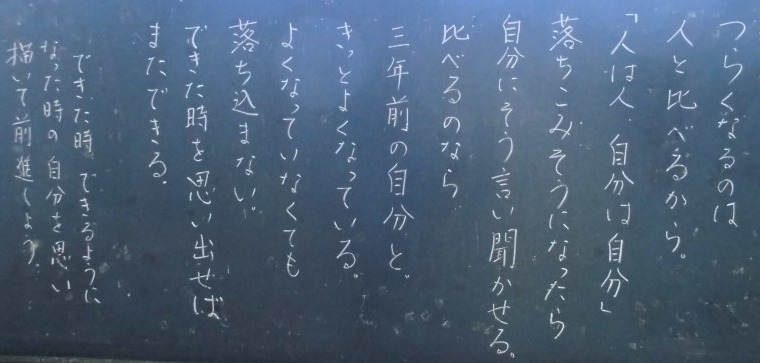 つらくなるのは
人と比べるから。
「人は人、自分は自分」
落ちこみそうになったら
自分にそう言い聞かせる。
比べるのなら
三年前の自分と。
きっとよくなっている。
よくなっていなくても
落ち込まない。
できた時を思い出せば
またできる。
できた時、できるように
なった時の自分を思い
描いて前進しよう。